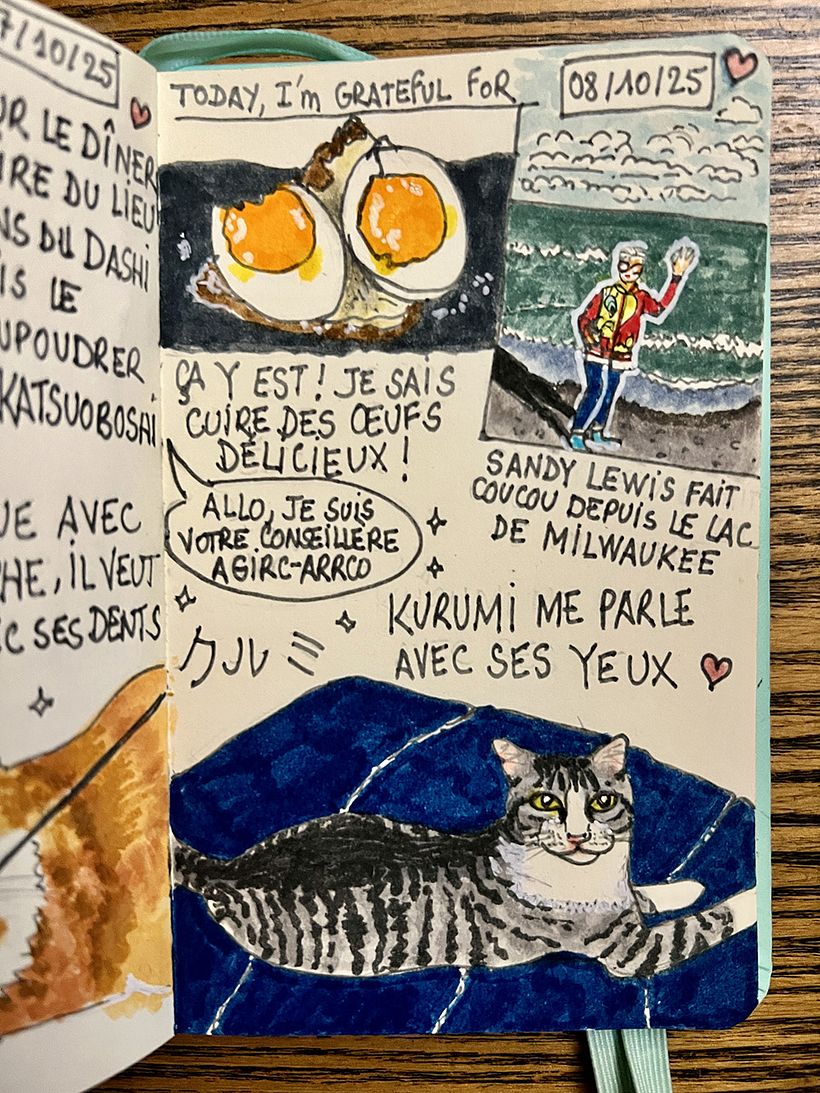 7/10/25
LE DÎNER
DU LIEU
DU DASHI
LE
KATSUOBOSHI
AVEC
IL VEUT
SES DENTS
TODAY, I'm GRATEFUL FOR
08/10/25
ÇA Y EST! JE SAIS
CUIRE DES ŒUFS
DÉLICIEUX!
ALLO, JE SUIS
VOTRE CONSEILLÈRE
AGIRC-ARRCO
SANDY LEWIS FAIT
COUCOU DEPUIS LE LAC
DE MILWAUKEE
クルミ
KURUMI ME PARLE
AVEC SES YEUX